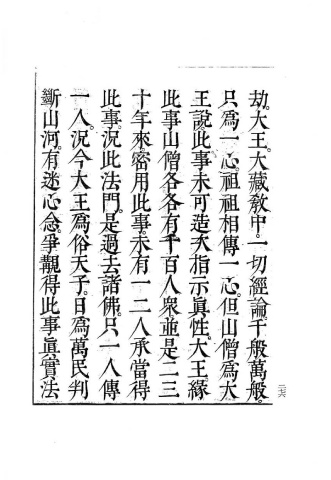 劫。大王。大藏敎中。一切經論。千般萬般。
只爲一心。祖祖相傳一心。但山僧爲大
王說。此事未可造次指示眞性。大王緣
此事山僧各各有千百人衆。並是二三
十年來。密用此事。未有一二人承當得
此事。況此法門。是過去諸佛。只一人傳
一人。況今大王爲俗天子。日爲萬民判
斷山河。有迷心念。爭覩得此事眞實法
二六